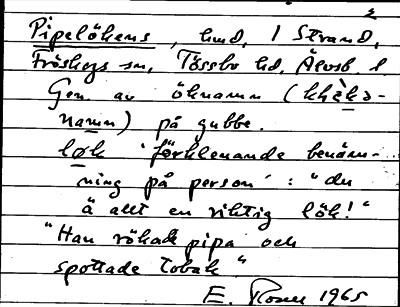 2
Pipelökens, hmd, I Strand,
Fröskogs sn, Tössbo hd, Älvsb. l.
Gen. av öknamn (
namn) på gubbe.
løk 'förklenande benäm-
ning på person': "du
ä allt en riktig lök!"
"Han rökade pipa och
spottade tobak"
E. Rosén 1965